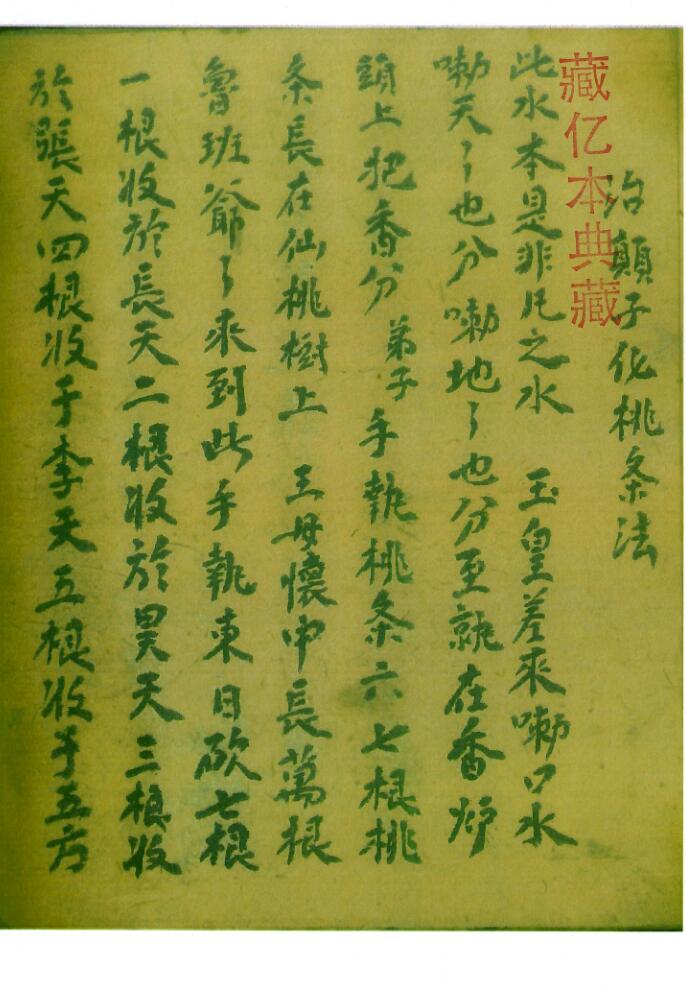 治顛子化桃条法
藏亿本典藏
此水本是非凡之水 玉皇差來嘞口水
嘞天〻也分嘞地〻也分至執在香炉
頭上把香分 弟子手執桃条六七根桃
条長在仙桃樹上 王母懷中長萬根
魯班爺〻來到此手執東日砍七根
一根收於長天二根收於昊天三根收
於張天四根收于李天五根收于五方